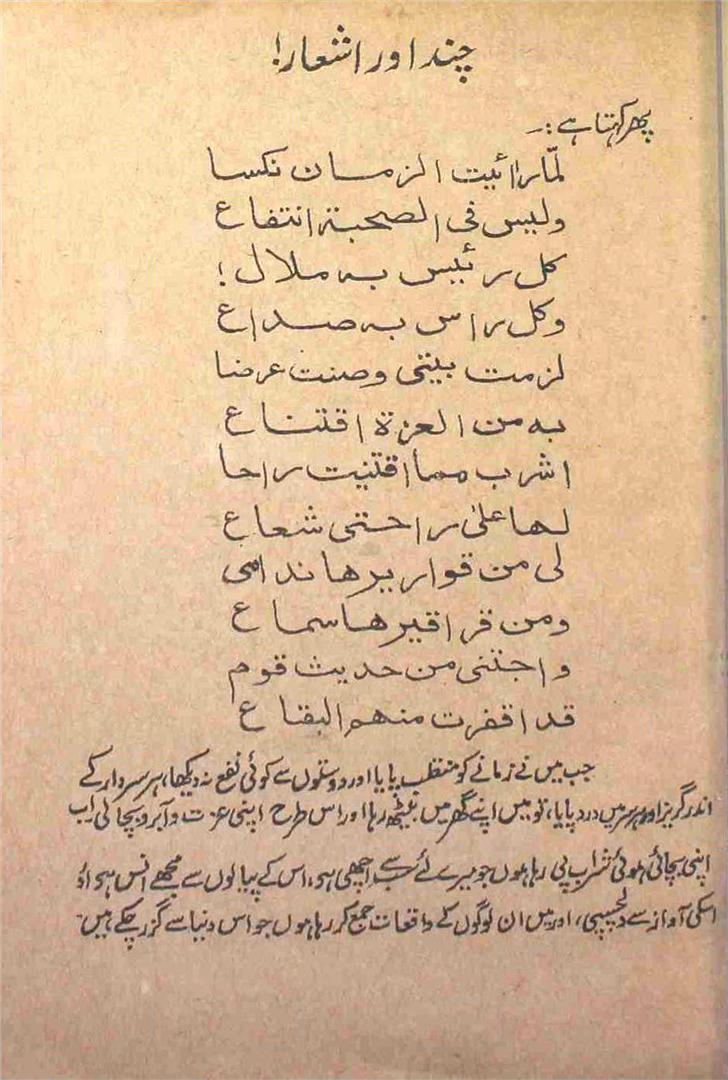 چند اور اشعار!
پھر کہتا ہے :۔
لمّا رائیت الزمان نکسا
ولیس فی الصحبۃ انتفاع
کل رئیس بہ ملال !
وکل راس بہ صداع
لزمت بیتی وصنت عرضا
بہ من العزۃ اقتناع
اشرب مما اقتنیت راحا
لھا علیٰ راحتی شعاع
لی من قواریرھا ندامی
ومن قراقیرھا سماع
واجتنی من حدیث قوم
قد اقفرت منھم البقاع
جب میں نے زمانے کو منقلب پایا اور دوستوں سے کوئی نفع نہ دیکھا، ہر سردار کے
اندر گریز اور ہر سر میں درد پایا، تو میں اپنے گھر میں بیٹھ رہا اور اس طرح اپنی عزت و آبرو بچا لی اب
اپنی بچائی ہوئی شراب پی رہا ہوں جو میرے لئے سب سے اچھی ہے، اس کے پیالوں سے مجھے انس ہے اور
اسکی آواز سے دلچسپی، اور میں ان لوگوں کے واقعات جمع کر رہا ہوں جو اس دنیا سے گزر چکے ہیں۔